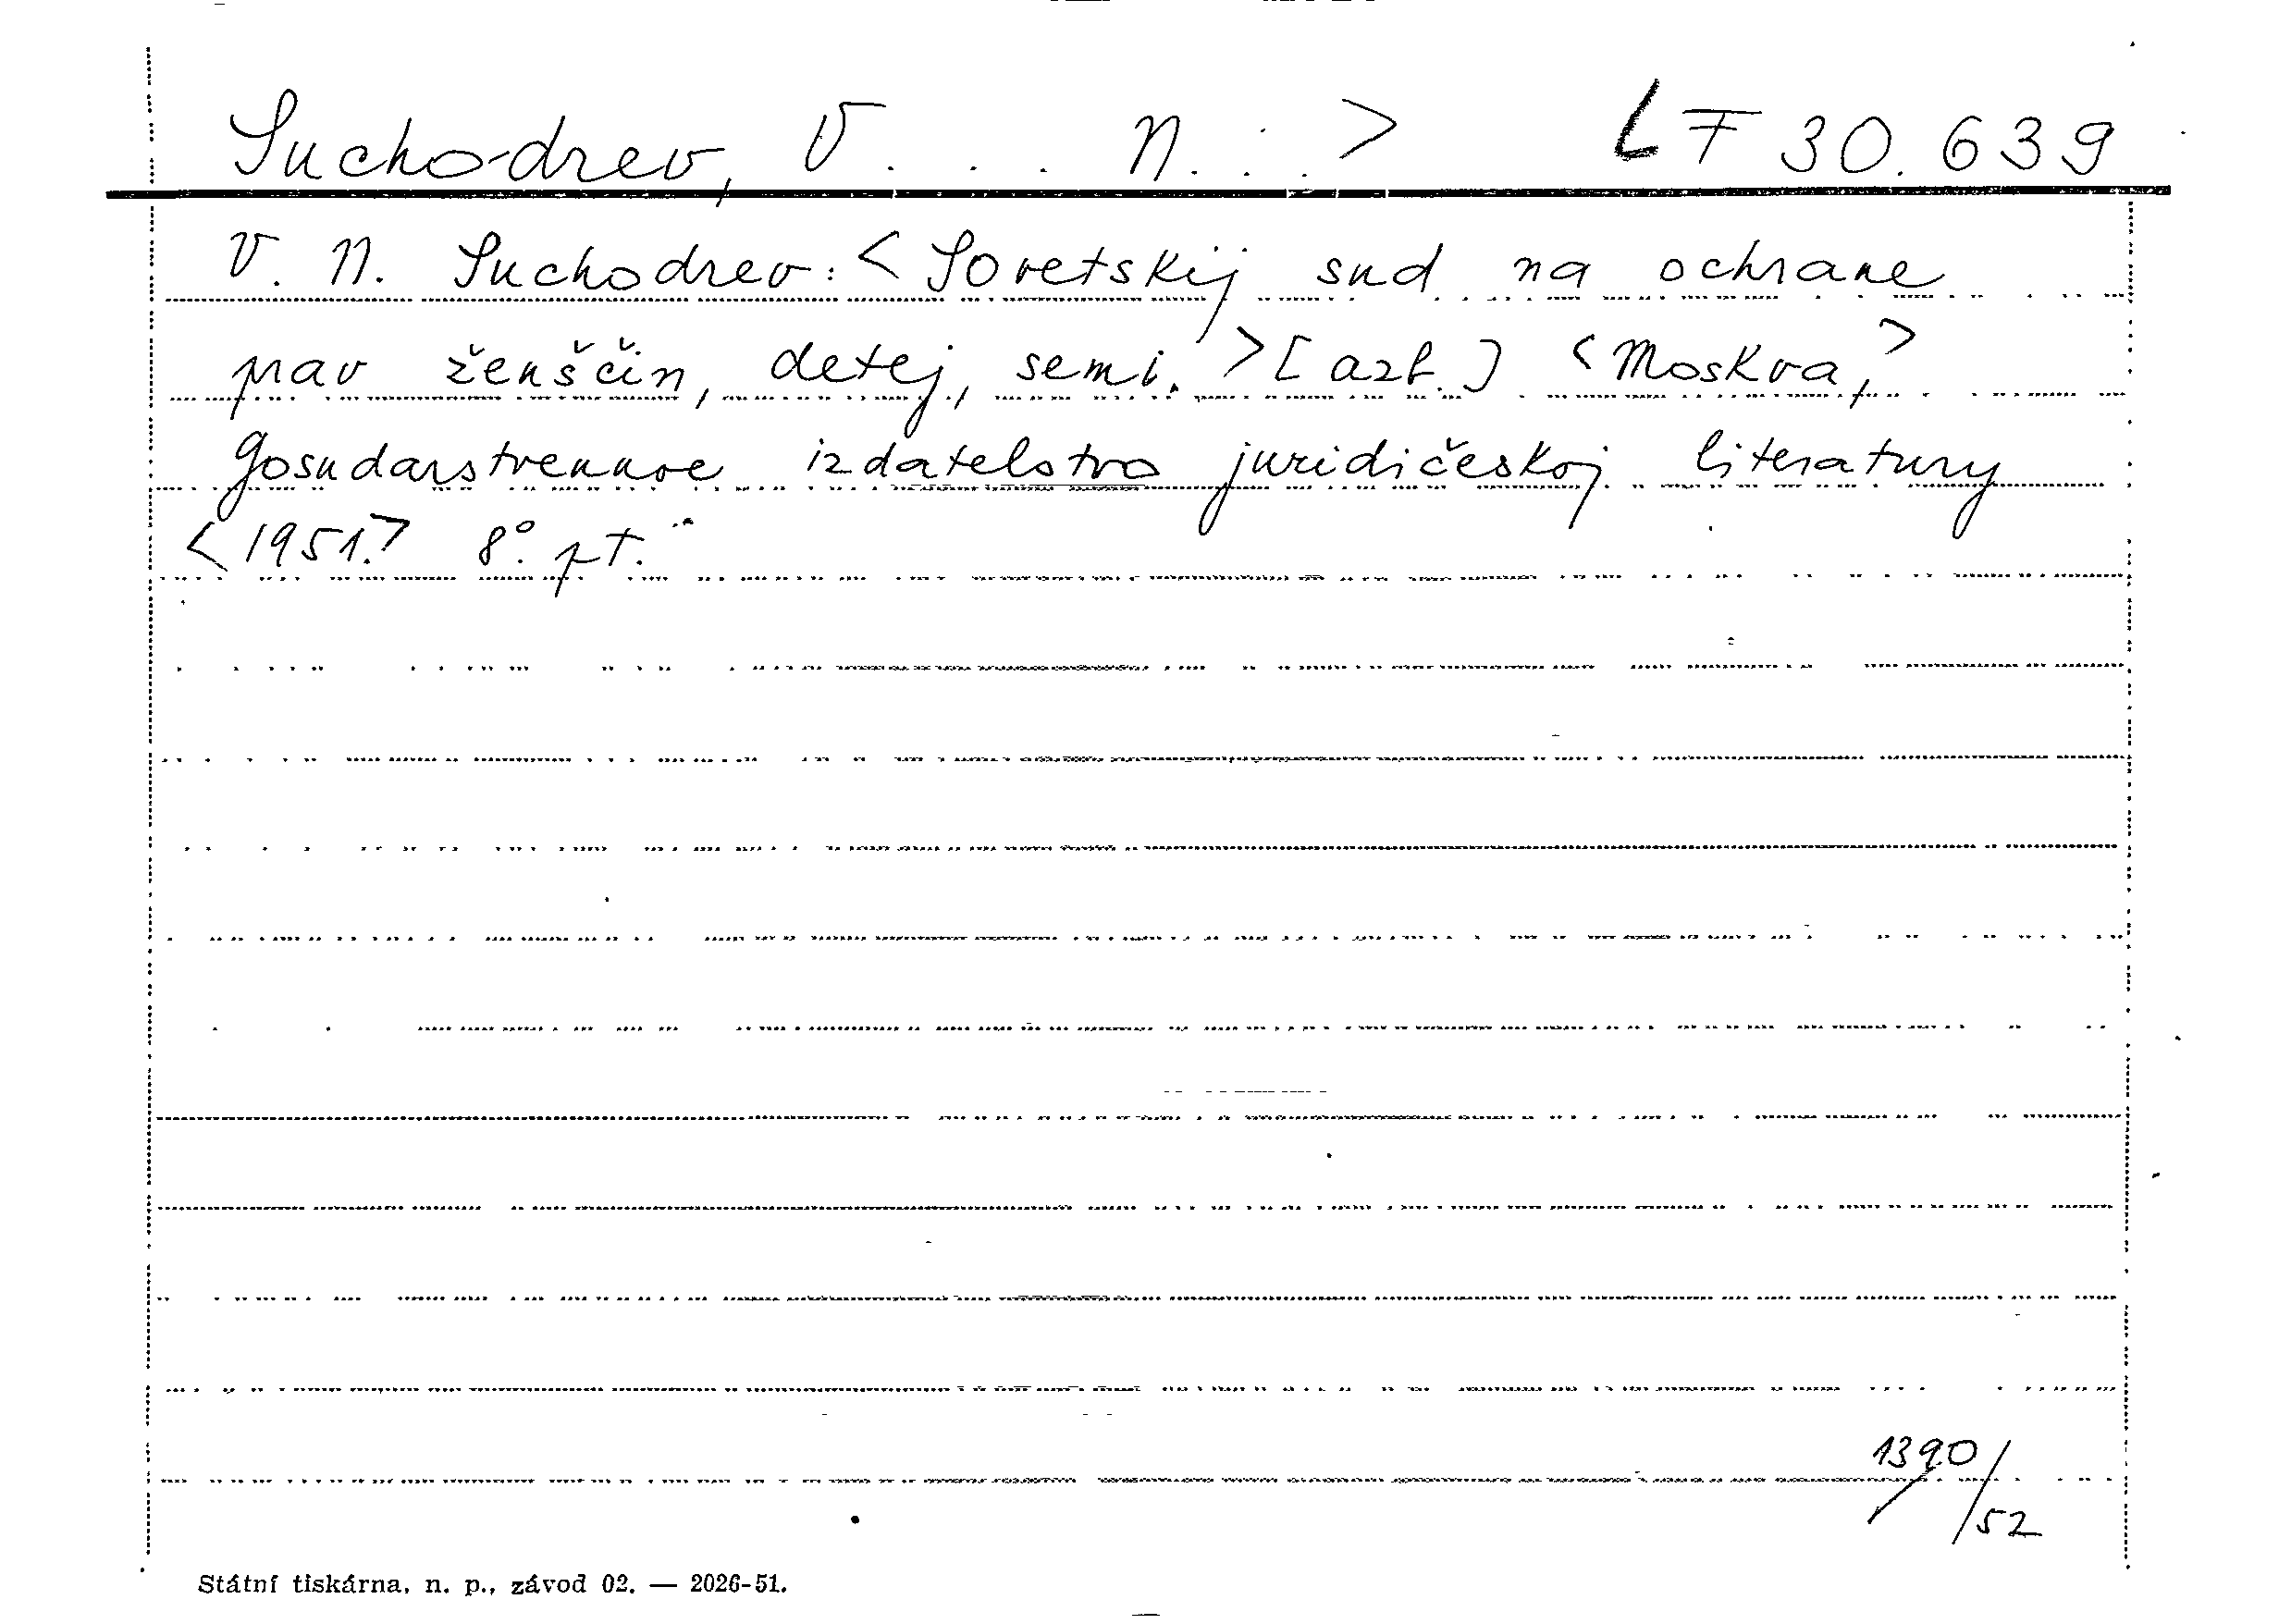 Suchodrev, V . . . N. . . > LF 30.639
V. N. Suchodrev: < Sovetskij sud na ochrane
prav ženščin, detej, semi. > [azb.] < Moskva, >
Gosudarstvennoe izdatelstvo juridičeskoj literatury
< 1951. > 8°. pt.
1390/52
Státní tiskárna, n. p., závod 02. — 2026-51.